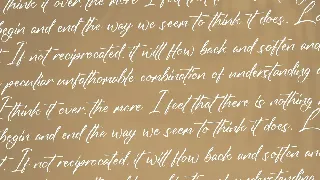 think it over, the more I feel that t
begin and end the way we seem to think it does. Lo
t. If not reciprocated, it will flow back and soften and
peculiar unfathomable combination of understanding a
I think it over, the more I feel that there is nothing
begin and end the way we seem to think it does. L
t. If not reciprocated, it will flow back and soften an
peculiar unfathomable combination of understandin